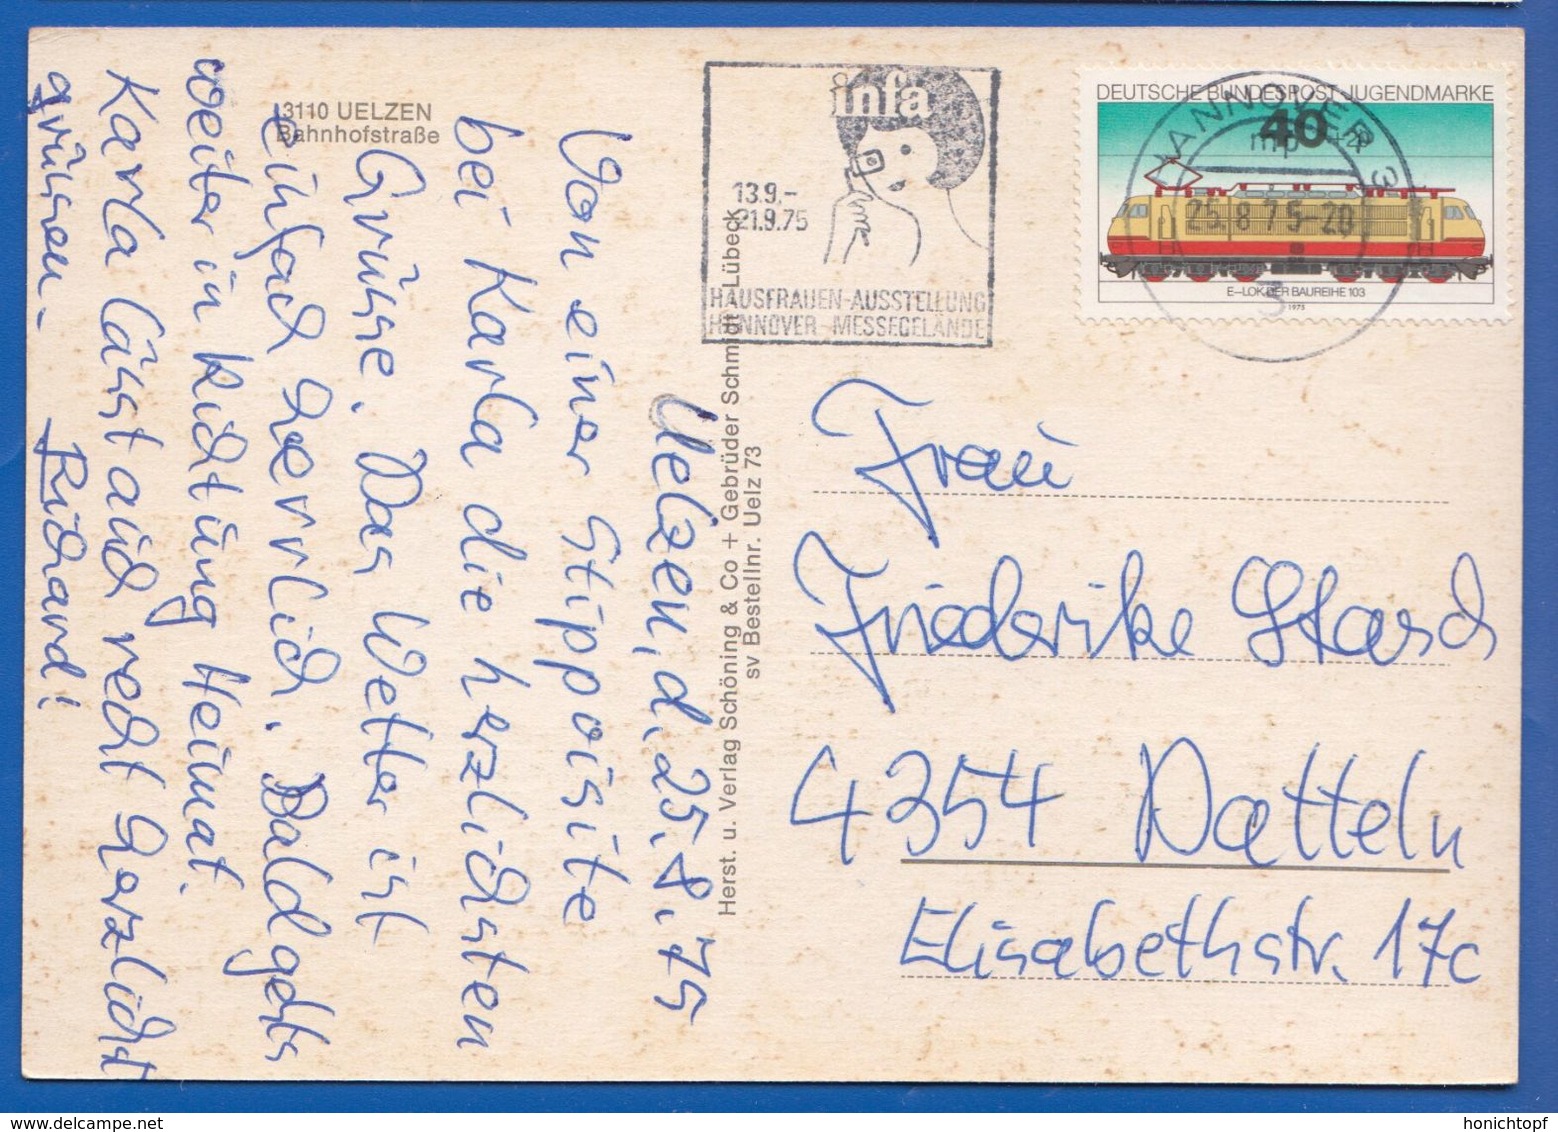 3110 UELZEN
Bahnhofstraße
Uelzen, d. 25.8.75
Von einer Stippvisite
bei Karla die herzlichsten
Grüsse. Das Wetter ist
einfach herrlich. Bald gehts
weiter in Richtung Heimat.
Karla lässt auch recht herzlichst
grüssen.
Richard!
Herst. u. Verlag Schöning & Co + Gebrüder Schmidt Lübeck
sv Bestellnr. Uelz 73
infa
13.9.-
21.9.75
HAUSFRAUEN-AUSSTELLUNG
HANNOVER MESSEGELÄNDE
DEUTSCHE BUNDESPOST JUGENDMARKE
40
E-LOK DER BAUREIHE 103
1975
HANNOVER 3
25.8.75-20
3
Frau
Friederike
4354 Datteln
Elisabethstr. 17c
honichtopf